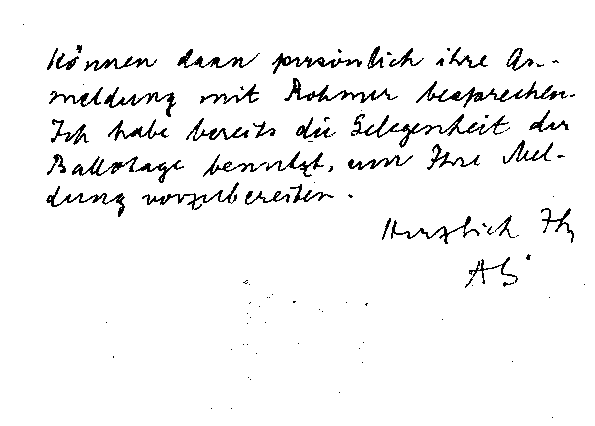 können dann persönlich ihre An-
meldung mit Rohmer besprechen.
Ich habe bereits die Gelegenheit der
Ballotage benutzt, um Ihre Mel-
dung vorzubereiten.
Herzlich Ihr